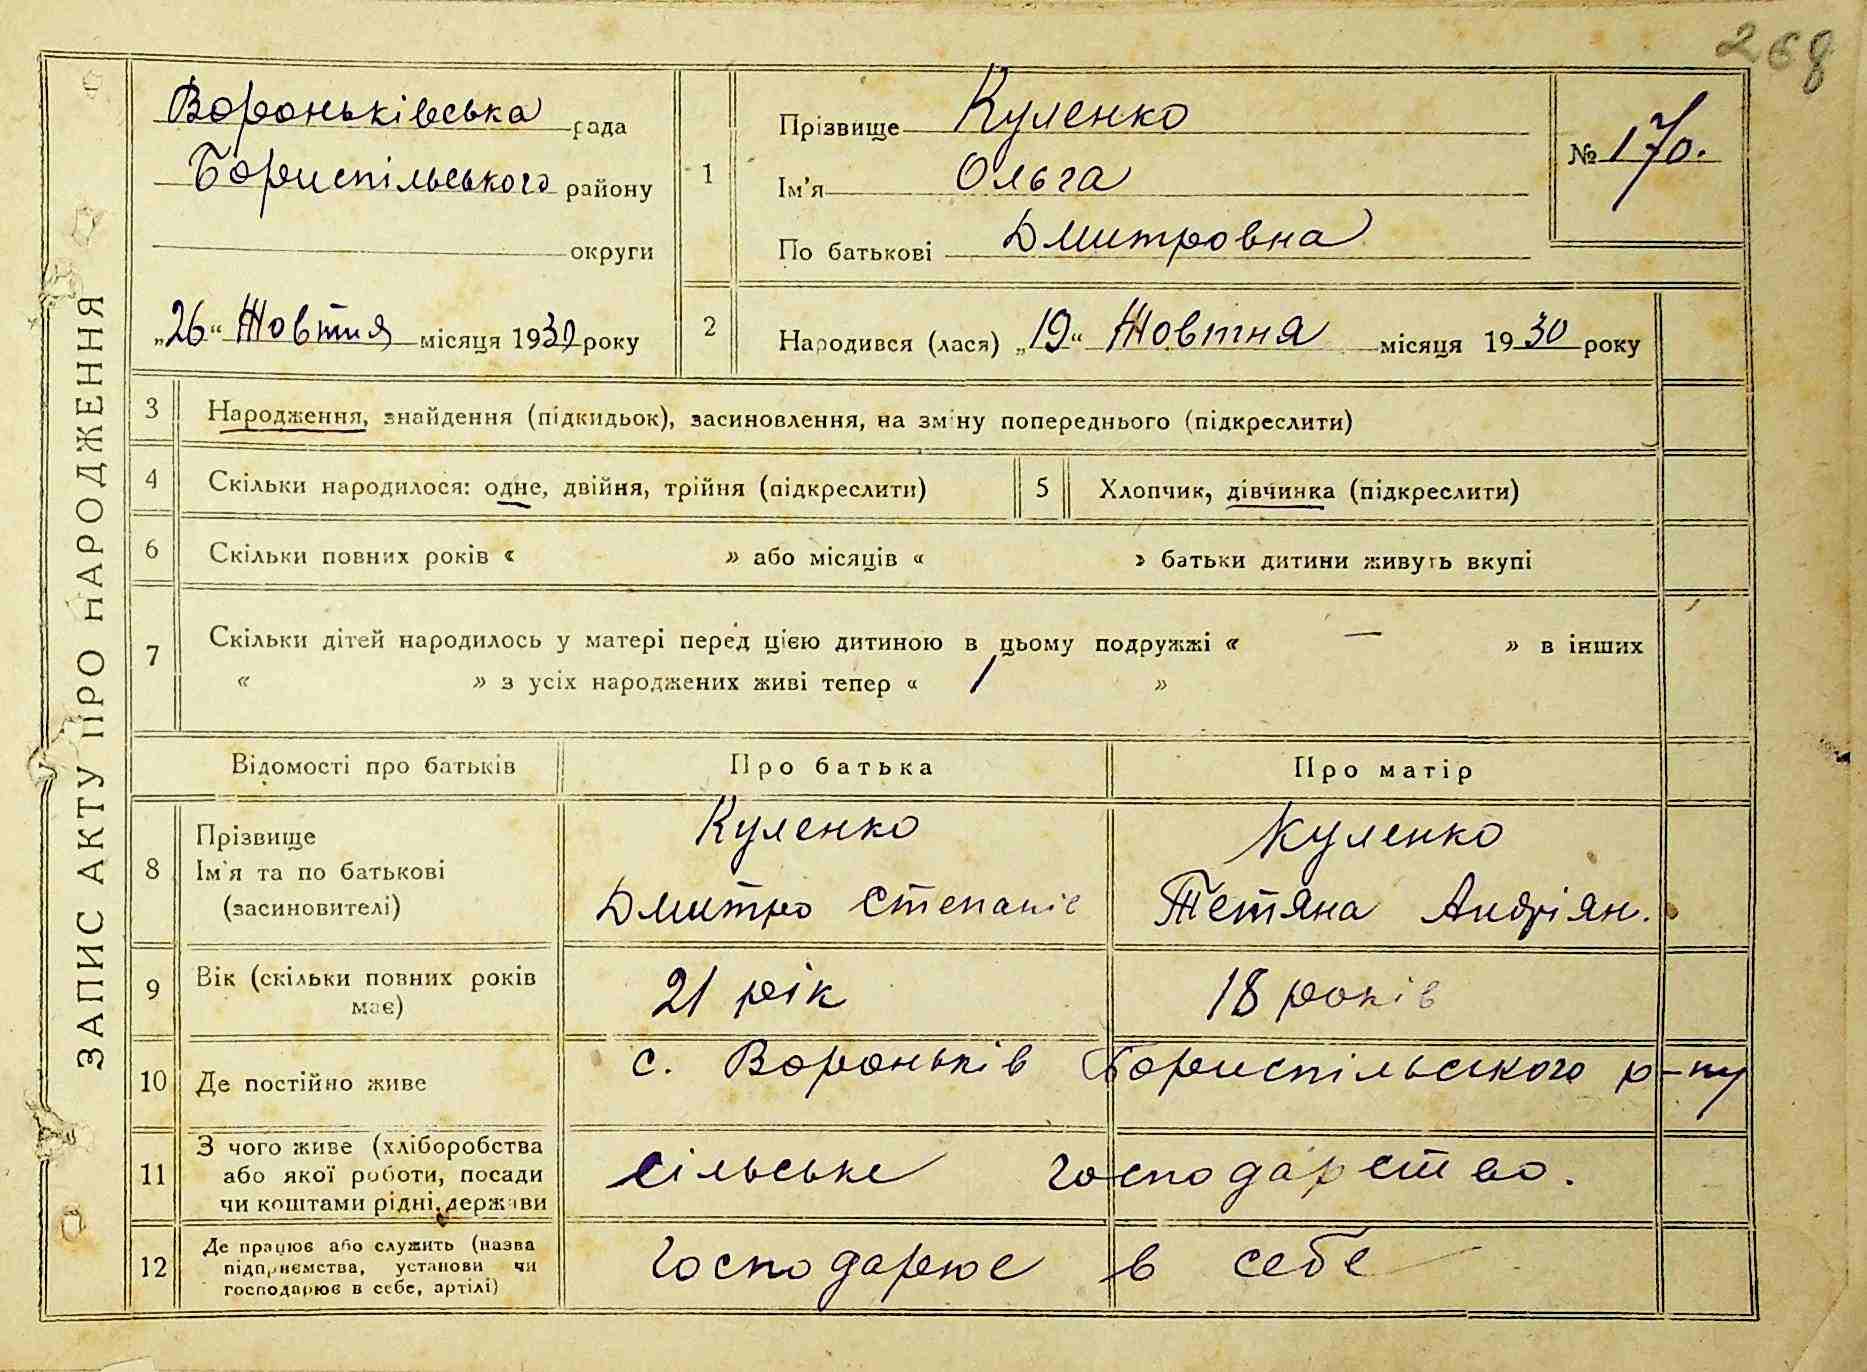 268
ЗАПИС АКТУ ПРО НАРОДЖЕННЯ
Вороньківська рада
Бориспільського району
округи
„26“ Жовтня місяця 1930 року
1
Прізвище Куленко
Ім'я Ольга
По батькові Дмитровна
№ 170.
2
Народився (лася) „19“ Жовтня місяця 1930 року
3 Народження, знайдення (підкидьок), засиновлення, на зміну попереднього (підкреслити)
4 Скільки народилося: одне, двійня, трійня (підкреслити) 5 Хлопчик, дівчинка (підкреслити)
6 Скільки повних років « » або місяців « » батьки дитини живуть вкупі
7 Скільки дітей народилось у матері перед цією дитиною в цьому подружжі « — » в інших
« » з усіх народжених живі тепер « 1 »
Відомості про батьків Про батька Про матір
8 Прізвище Куленко Куленко
Ім'я та по батькові Дмитро Степанів Тетяна Андріян.
(засиновителі)
9 Вік (скільки повних років має) 21 рік 18 років
10 Де постійно живе с. Вороньків Бориспільського р-ну
11 З чого живе (хліборобства
або якої роботи, посади сільське господарство.
чи коштами рідні, держави
12 Де працює або служить (назва
підприємства, установи чи господарює в себе
господарює в себе, артілі)